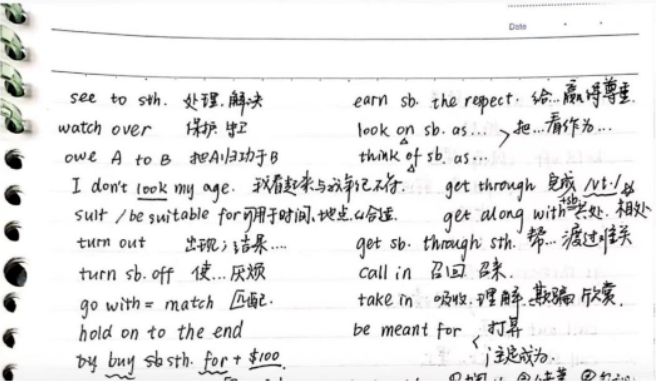 Date
see to sth. 处理.解决
earn sb. the repect. 给...赢得尊重.
watch over 保护.
look on sb. as... 把...看作为...
owe A to B 把A归功于B
think of sb. as...
I don't look my age. 我看起来与我年纪不符.
get through 完成
suit / be suitable for 可用于时间.地点.合适.
get along with sb 共处. 相处
turn out 出现;结果....
get sb. through sth. 帮...渡过难关
turn sb. off 使...厌烦
call in 召回 召来.
go with = match 匹配.
take in 吸收.理解.欺骗.欣赏.
hold on to the end
be meant for 打算
注定成为.
by buy sb sth. for + $100.